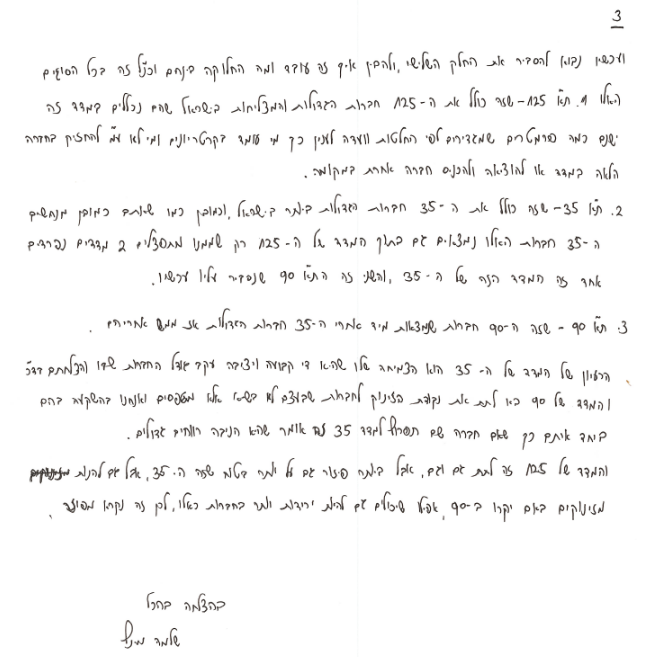 3
ועכשיו נבוא להסביר את החלק השלישי, ולהבין איך זה עובד ומה החלוקה בינהם וכנ"ל זה בכל הסוגים
האלו 1. ת"א 125 - שזה כולל את ה-125 חברות הגדולות והמצליחות בישראל שהם נכללים במדד זה
ישנם כמה פרמטרים שמגדירים לפי החלטות וועדה לענין כך מי עומד בקריטריונים ומי לא ע"מ להחזיק בחברה
הלאה במדד או להוציאה ולהכניס חברה אחרת במקומה.
2. ת"א 35 - שזה כולל את ה-35 חברות הגדולות ביותר בישראל, וכמובן כמו שאתם כמובן מנחשים
ה-35 חברות האלו נמצאים גם בתוך המדד של ה-125 רק שממנו מתפצלים 2 מדדים נפרדים
אחד זה המדד הזה של ה-35, והשני זה הת"א 90 שנסביר עליו עכשיו.
3. ת"א 90 - שזה ה-90 חברות שנמצאות מיד אחרי ה-35 חברות הגדולות אז ממש אחריהם.
הרעיון של המדד של ה-35 הוא הצמיחה שלו שהיא די קבועה ויציבה עקב גודל החברות שבו והצלחתם בד"כ
והמדד של 90 בא לתת את נקודת הזינוק לחברות שבעצם לא בשיא אלא מטפסים ואנחנו בהשקעה בהם
ביחד איתם כך שאם חברה שם תטרוף למדד 35 זה אומר שהיא הניבה רווחים גדולים.
והמדד של 125 זה לתת גם וגם, אבל ביותר פיזור גם על יותר בטוח שזה ה-35, אבל גם להנות
מזינוקים באם יקרו ב-90, אפילו שיכולים גם להיות ירידות יותר בחברות כאלו, לכן זה נקרא מפוזר.
בהצלחה בהכל
שלמה